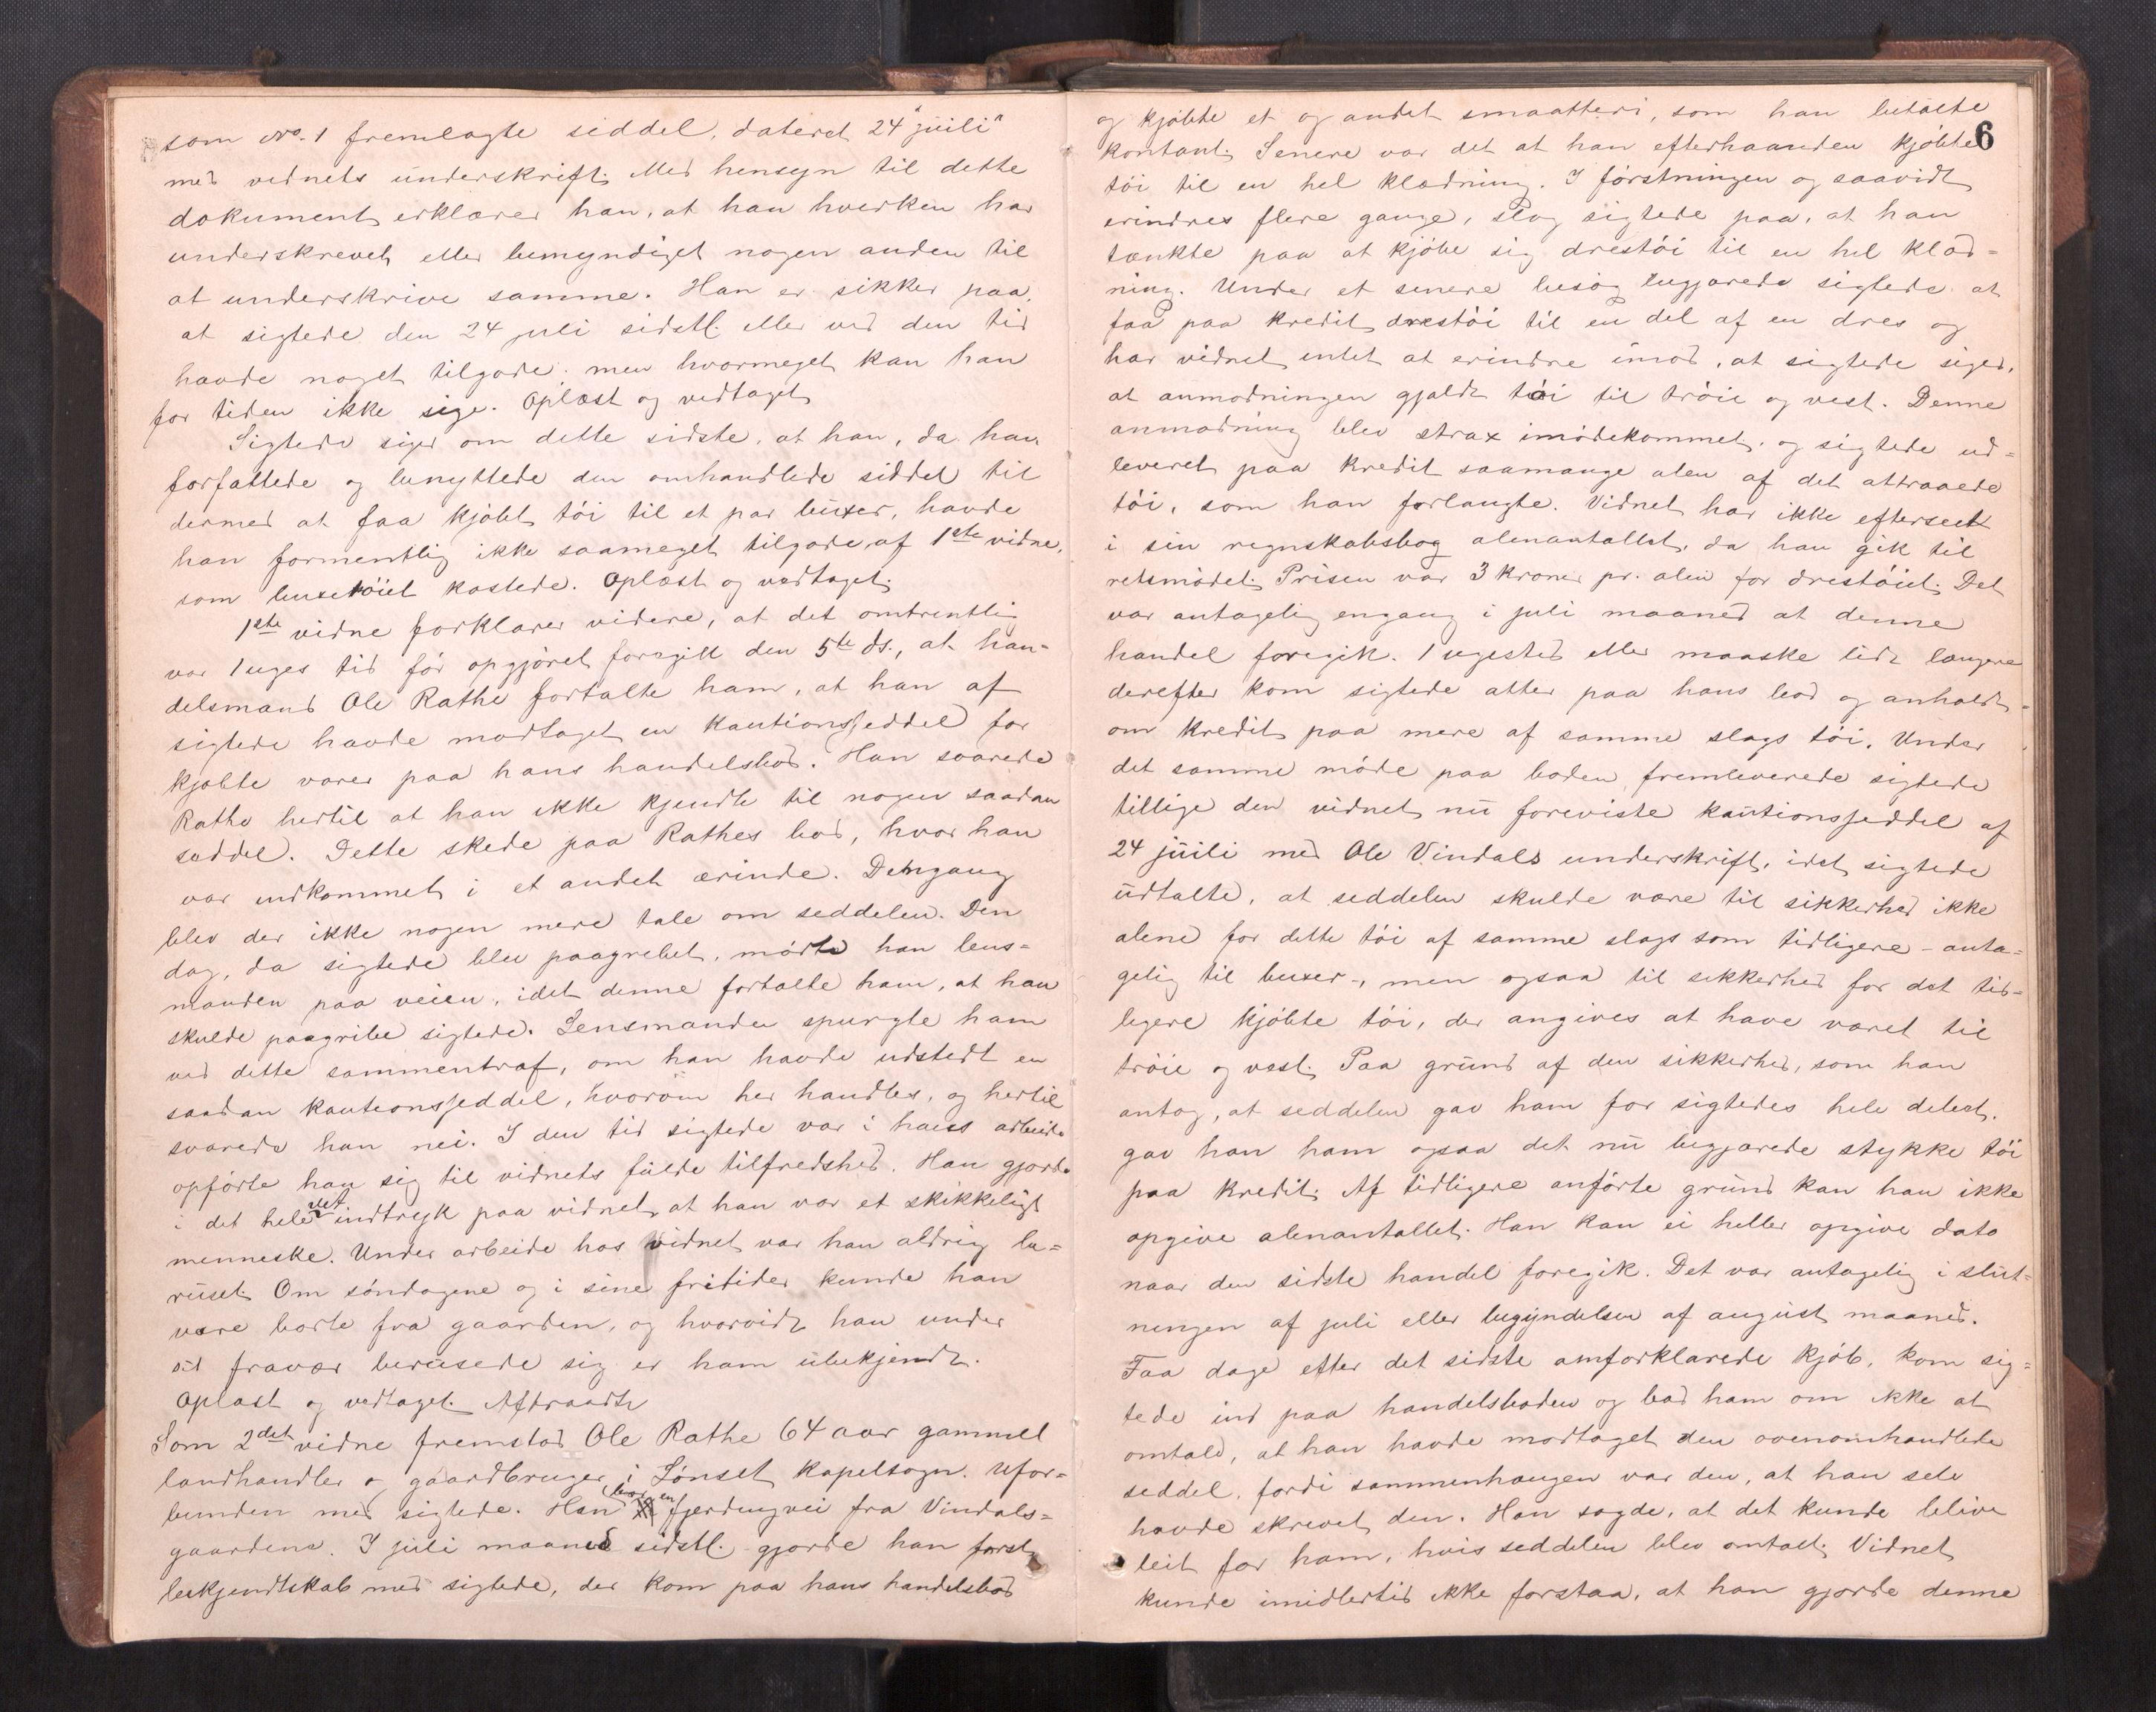 som No. 1 fremlagte siddel, dateret 24 "juili"
med vidnets underskrift. Med hensyn til dette
dokument erklærer han, at han hverken har
underskrevet eller bemyndiget nogen anden til
at underskrive samme. Han er sikker paa,
at sigtede den 24 juli sidstl. eller ved den tid
havde noget tilgode; men hvormeget kan han
for tiden ikke sige. Oplæst og vedtaget
Sigtede siger om dette sidste, at han, da han
forfattede og benyttede den omhandlede siddel til
dermed at faa kjøbt tøi til et par buxer, havde
han formentlig ikke saameget tilgode af 1ste vidne,
som buxetøiet kostede. Oplæst og vedtaget.
1ste vidne forklarer videre, at det omtrentlig
var 1 uges tid før opgjøret foregik den 5te ds., at han-
delsmand Ole Rathe fortalte ham, at han af
sigtede havde modtaget en kautionsseddel for
kjøbte varer paa hans handelsbod. Han svarede
Rathe hertil at han ikke kjendte til nogen saadan
seddel. Dette skede paa Rathes bod, hvor han
var indkommet i et andet ærinde. Dengang
blev der ikke nogen mere tale om seddelen. Den
dag, da sigtede blev paagrebet, mødte han lens=
manden paa veien, idet denne fortalte ham, at han
skulde paagribe sigtede. Lensmanden spurgte ham
ved dette sammentræf, om han havde udstedt en
saadan kautionsseddel, hvorom her handles, og hertil
svarede han nei. I den tid sigtede var i hans arbeide
opførte han sig til vidnets fulde tilfredshed. Han gjorde
i det hele det indtryk paa vidnet, at han var et skikkeligt
menneske. Under arbeide hos vidnet var han aldrig be=
ruset. Om søndagene og i sine fritider kunde han
være borte fra gaarden, og hvorvidt han under
sit fravær berusede sig er ham ubekjendt.
Oplæst og vedtaget. Aftraadte
Som 2det vidne fremstod Ole Rathe 64 aar gammel
landhandler og gaardbruger i Lønset kapelsogn. Ufor=
bunden med sigtede. Han bor en fjerdingvei fra Vindals=
gaardene. I juli maaned sidstl. gjorde han først
bekjendtskab med sigtede, der kom paa hans handelsbod
6
og kjøbte et og andet smaatteri, som han betalte
kontant. Senere var det at han efterhaanden kjøbte
tøi til en hel klædning. I førstningen og saavidt
erindres flere gange, slog sigtede paa, at han
tænkte paa at kjøbe sig drestøi til en hel klæd=
ning. Under et senere besøg begjærede sigtede at
faa paa kredit drestøi til en del af en dres og
har vidnet intet at erindre imod, at sigtede siger,
at anmodningen gjaldt tøi til trøie og vest. Denne
anmodning blev strax imødekommet, og sigtede ud=
leveret paa kredit saamange alen af det attraaede
tøi, som han forlangte. Vidnet har ikke efterseet
i sin regnskabsbog alenantallet, da han gik til
retsmødet. Prisen var 3 kroner pr. alen for drestøiet. Det
var antagelig engang i juli maaned at denne
handel foregik. 1 ugestid eller maaske lidt længere
derefter kom sigtede atter paa hans bod og anholdt
om kredit paa mere af samme slags tøi. Under
det samme møde paa boden fremleverede sigtede
tillige den vidnet nu foreviste kautionsseddel af
24 juili med Ole Vindals underskrift, idet sigtede
udtalte, at seddelen skulde være til sikkerhed ikke
alene for dette tøi af samme slags som tidligere – anta=
gelig til buxer –, men ogsaa til sikkerhed for det tid=
ligere kjøbte tøi, der angives at have været til
trøie og vest. Paa grund af den sikkerhed, som han
antog, at seddelen gav ham for sigtedes hele debet,
gav han ham ogsaa det nu begjærede stykke tøi
paa kredit. Af tidligere anførte grund kan han ikke
opgive alenantallet. Han kan ei heller opgive dato
naar den sidste handel foregik. Det var antagelig i slut=
ningen af juli eller begyndelsen af august maaned.
Faa dage efter det sidste omforklarede kjøb, kom sig=
tede ind paa handelsboden og bad ham om ikke at
omtale, at han havde modtaget den ovenomhandlede
seddel, fordi sammenhængen var den, at han selv
havde skrevet den. Han sagde, at det kunde blive
leit for ham, hvis seddelen blev omtalt. Vidnet
kunde imidlertid ikke forstaa, at han gjorde denne